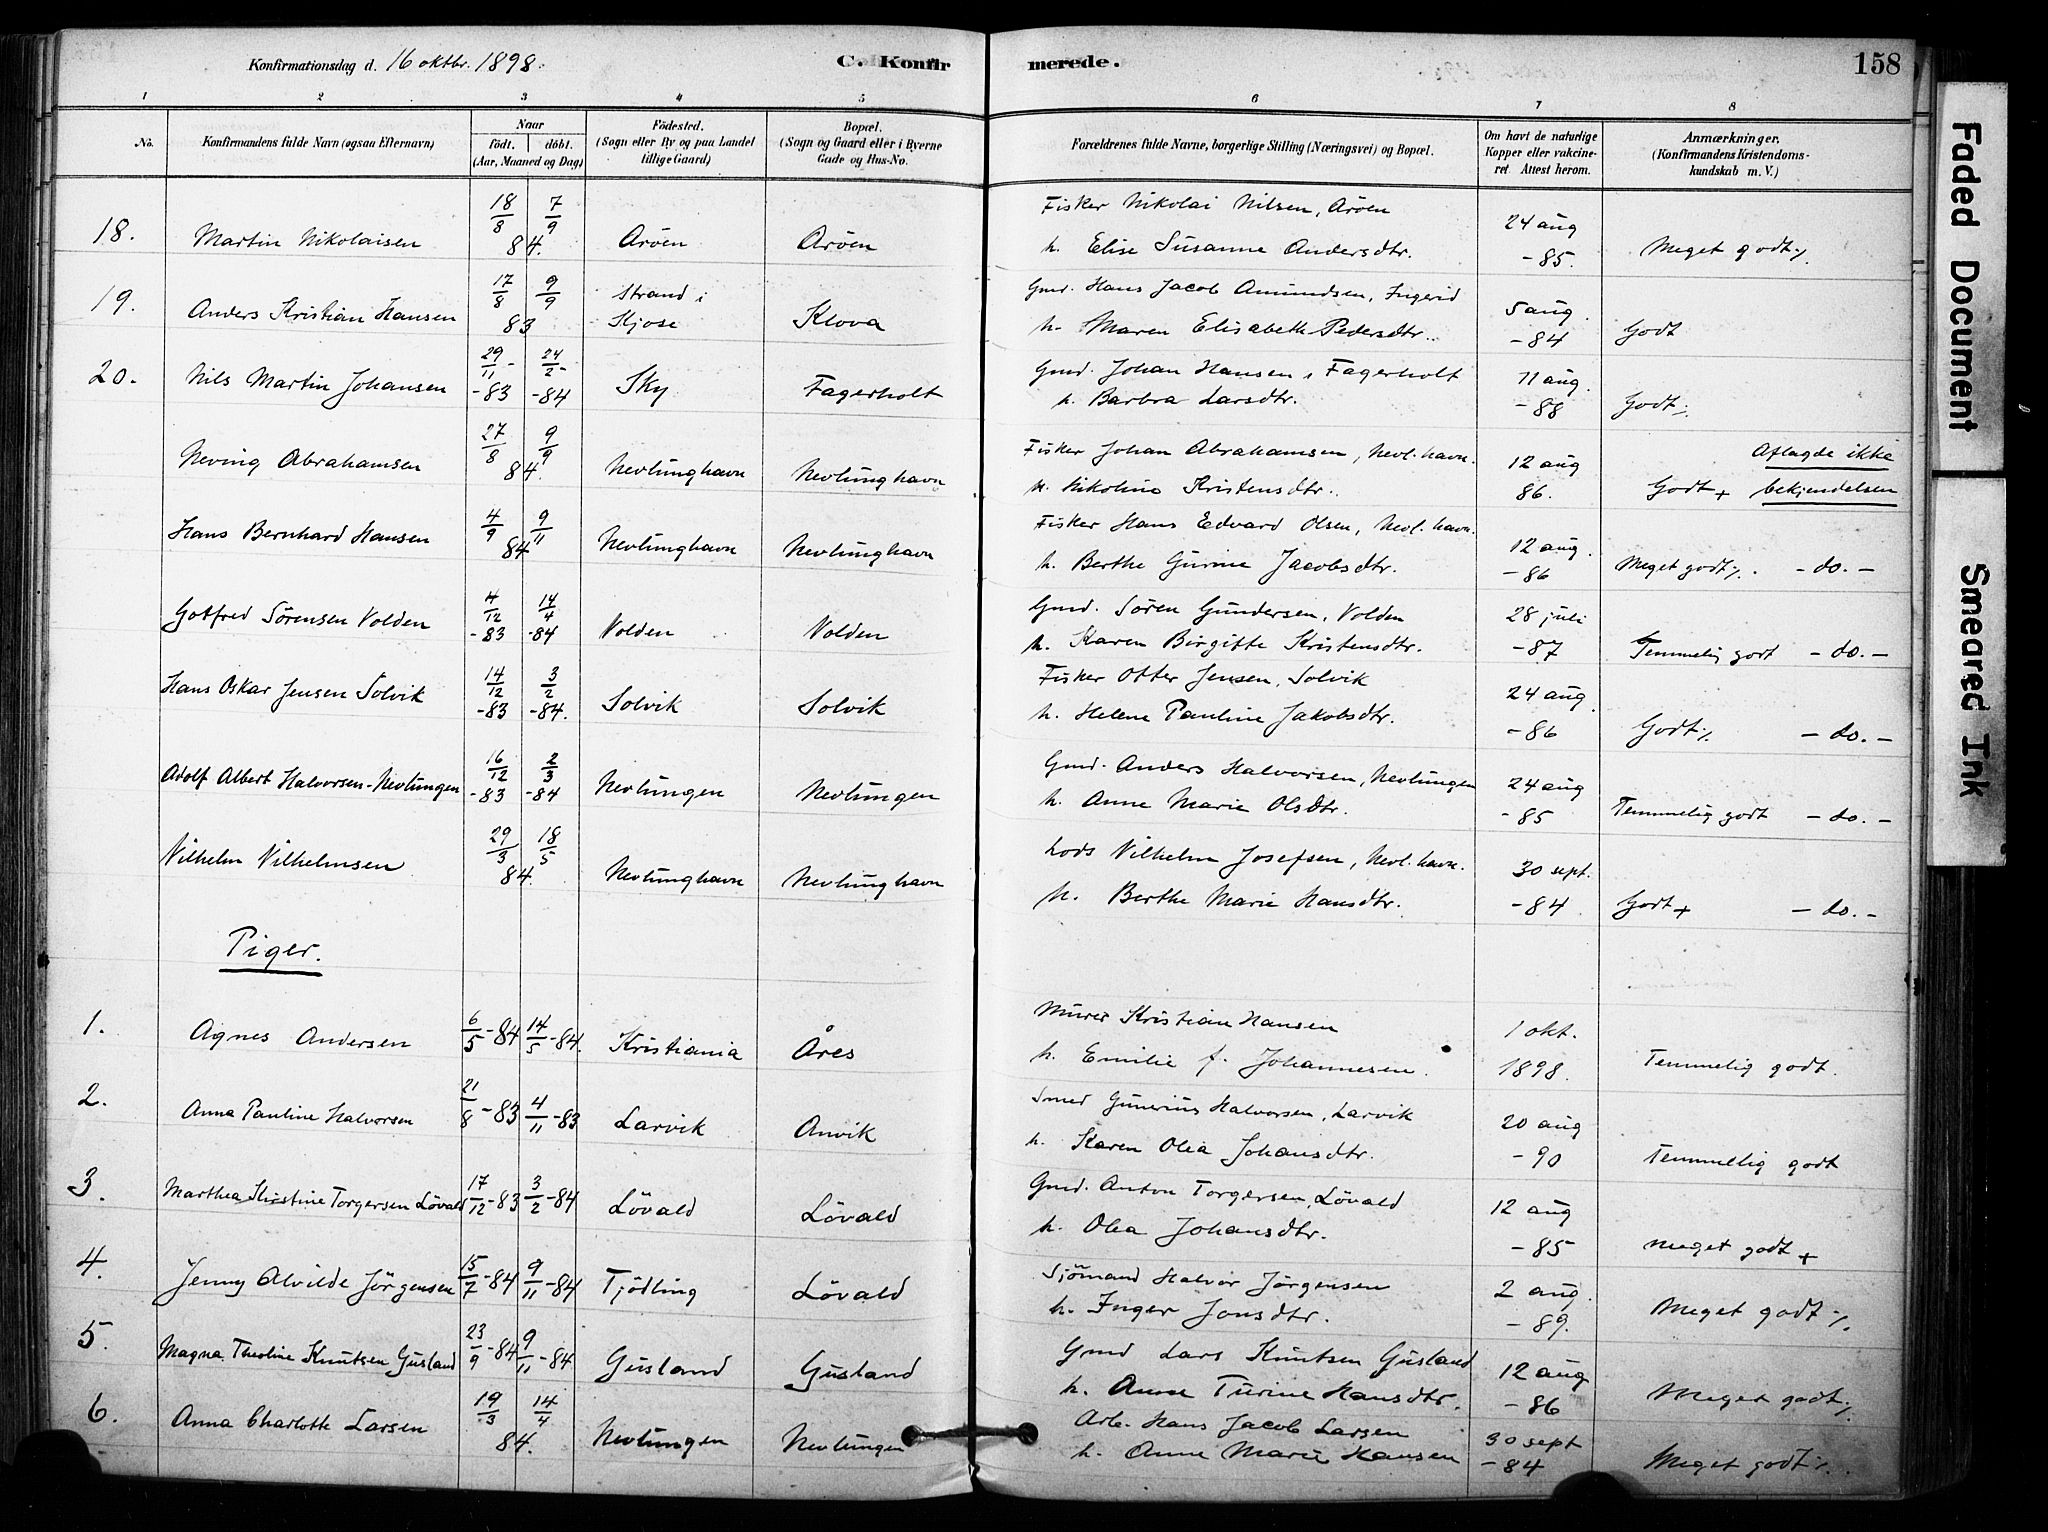 Konfirmationsdag d. 16 oktbr. 1898.
C. Konfirmerede.
158
1 2 3 4 5 6 7 8
No. Konfirmandens fulde Navn (ogsaa Efternavn) Naar födt. döbt. (Aar, Maaned og Dag) Födested. (Sogn eller By og paa Landet tillige Gaard) Bopæl. (Sogn og Gaard eller i Byerne Gade og Hus-No. Forældrenes fulde Navne, borgerlige Stilling (Næringsvei) og Bopæl. Om havt de naturlige Kopper eller vakcineret. Attest herom. Anmærkninger. (Konfirmandens Kristendomskundskab m. V.)
18. Martin Nikolaisen 18/8 7/9 84. Aröen Aröen Fisker Nikolai Nilsen, Aröen h. Elise Susanne Andersdtr. 24 aug -85. Meget godt %
19. Anders Kristian Hansen 17/8 9/9 83 Strand i Kjose Klova Gmd. Hans Jacob Amundsen, Ingerid h. Maren Elisabeth Pedersdtr. 5 aug. -84 Godt
20. Nils Martin Johansen 29/11 -83 24/2 -84 Sky Fagerholt Gmd. Johan Hansen, Fagerholt h. Barbra Larsdtr. 11 aug. -88 Godt %
Neving Abrahamsen 27/8 9/9 84. Nevlunghavn Nevlunghavn Fisker Johan Abrahamsen, Nevl. havn. h. Nikoline Kristensdtr. 12 aug 86. Godt + Aflagde ikke bekjendelsen
Hans Bernhard Hansen 4/9 9/11 84 Nevlunghavn Nevlunghavn Fisker Hans Edvard Olsen, Nevl. havn. h. Berthe Gurine Jacobsdtr. 12 aug. -86 Meget godt %. - do. -
Gotfred Sörensen Volden 4/12 -83 14/4 -84 Volden Volden Gmd. Sören Gundersen, Volden h. Karen Birgitte Kristensdtr. 28 juli -87 Temmelig godt - do. -
Hans Oskar Jensen Solvik 14/12 -83 3/2 -84. Solvik Solvik Fisker Otter Jensen, Solvik h. Helene Pauline Jakobsdtr. 24 aug. -86 Godt % - do. -
Adolf Albert Halvorsen-Nevlungen 16/12 -83 2/3 -84 Nevlungen Nevlungen Gmd. Anders Halvorsen, Nevlungen h. Anne Marie Olsdtr. 24 aug -85 Temmelig godt - do. -
Vilhelm Vilhelmsen 29/3 18/5 84. Nevlunghavn Nevlunghavn Lods Vilhelm Josefsen, Nevl. havn. h. Berthe Marie Hansdtr. 30 sept. -84 Godt + - do. -
Piger.
1. Agnes Andersen 6/5 -84 14/5 -84. Kristiania Åres Murer Kristian Hansen h. Emilie f. Johannesen. 1 okt. 1898. Temmelig godt.
2. Anna Pauline Halvorsen 21/8 -83 4/11 -83 Larvik Anvik Smed Gunerius Halvorsen, Larvik h. Karen Olea Johansdtr. 20 aug -90 Temmelig godt
3. Marthea Kristine Torgersen Lövald 17/12 -83 3/2 -84 Lövald Lövald Gmd. Anton Torgersen, Lövald h. Olea Johansdtr. 12 aug -85 Meget godt +
4. Jenny Alvilde Jörgensen 15/7 -84 9/11 -84 Tjödling Lövald Sjömand Halvor Jörgensen h. Inger Jonsdtr. 2 aug. -89. Meget godt %.
5. Magna Theoline Knutsen Gusland 23/9 -84 9/11 -84 Gusland Gusland Gmd Lars Knutsen Gusland h. Anne Turine Hansdtr. 12 aug -86 Meget godt %
6. Anna Charlotte Larsen 19/3 14/4 84. Nevlungen Nevlungen Arb. Hans Jacob Larsen h. Anne Marie Hansen 30 sept -84 Meget godt %.
Faded Document
Smeared Ink